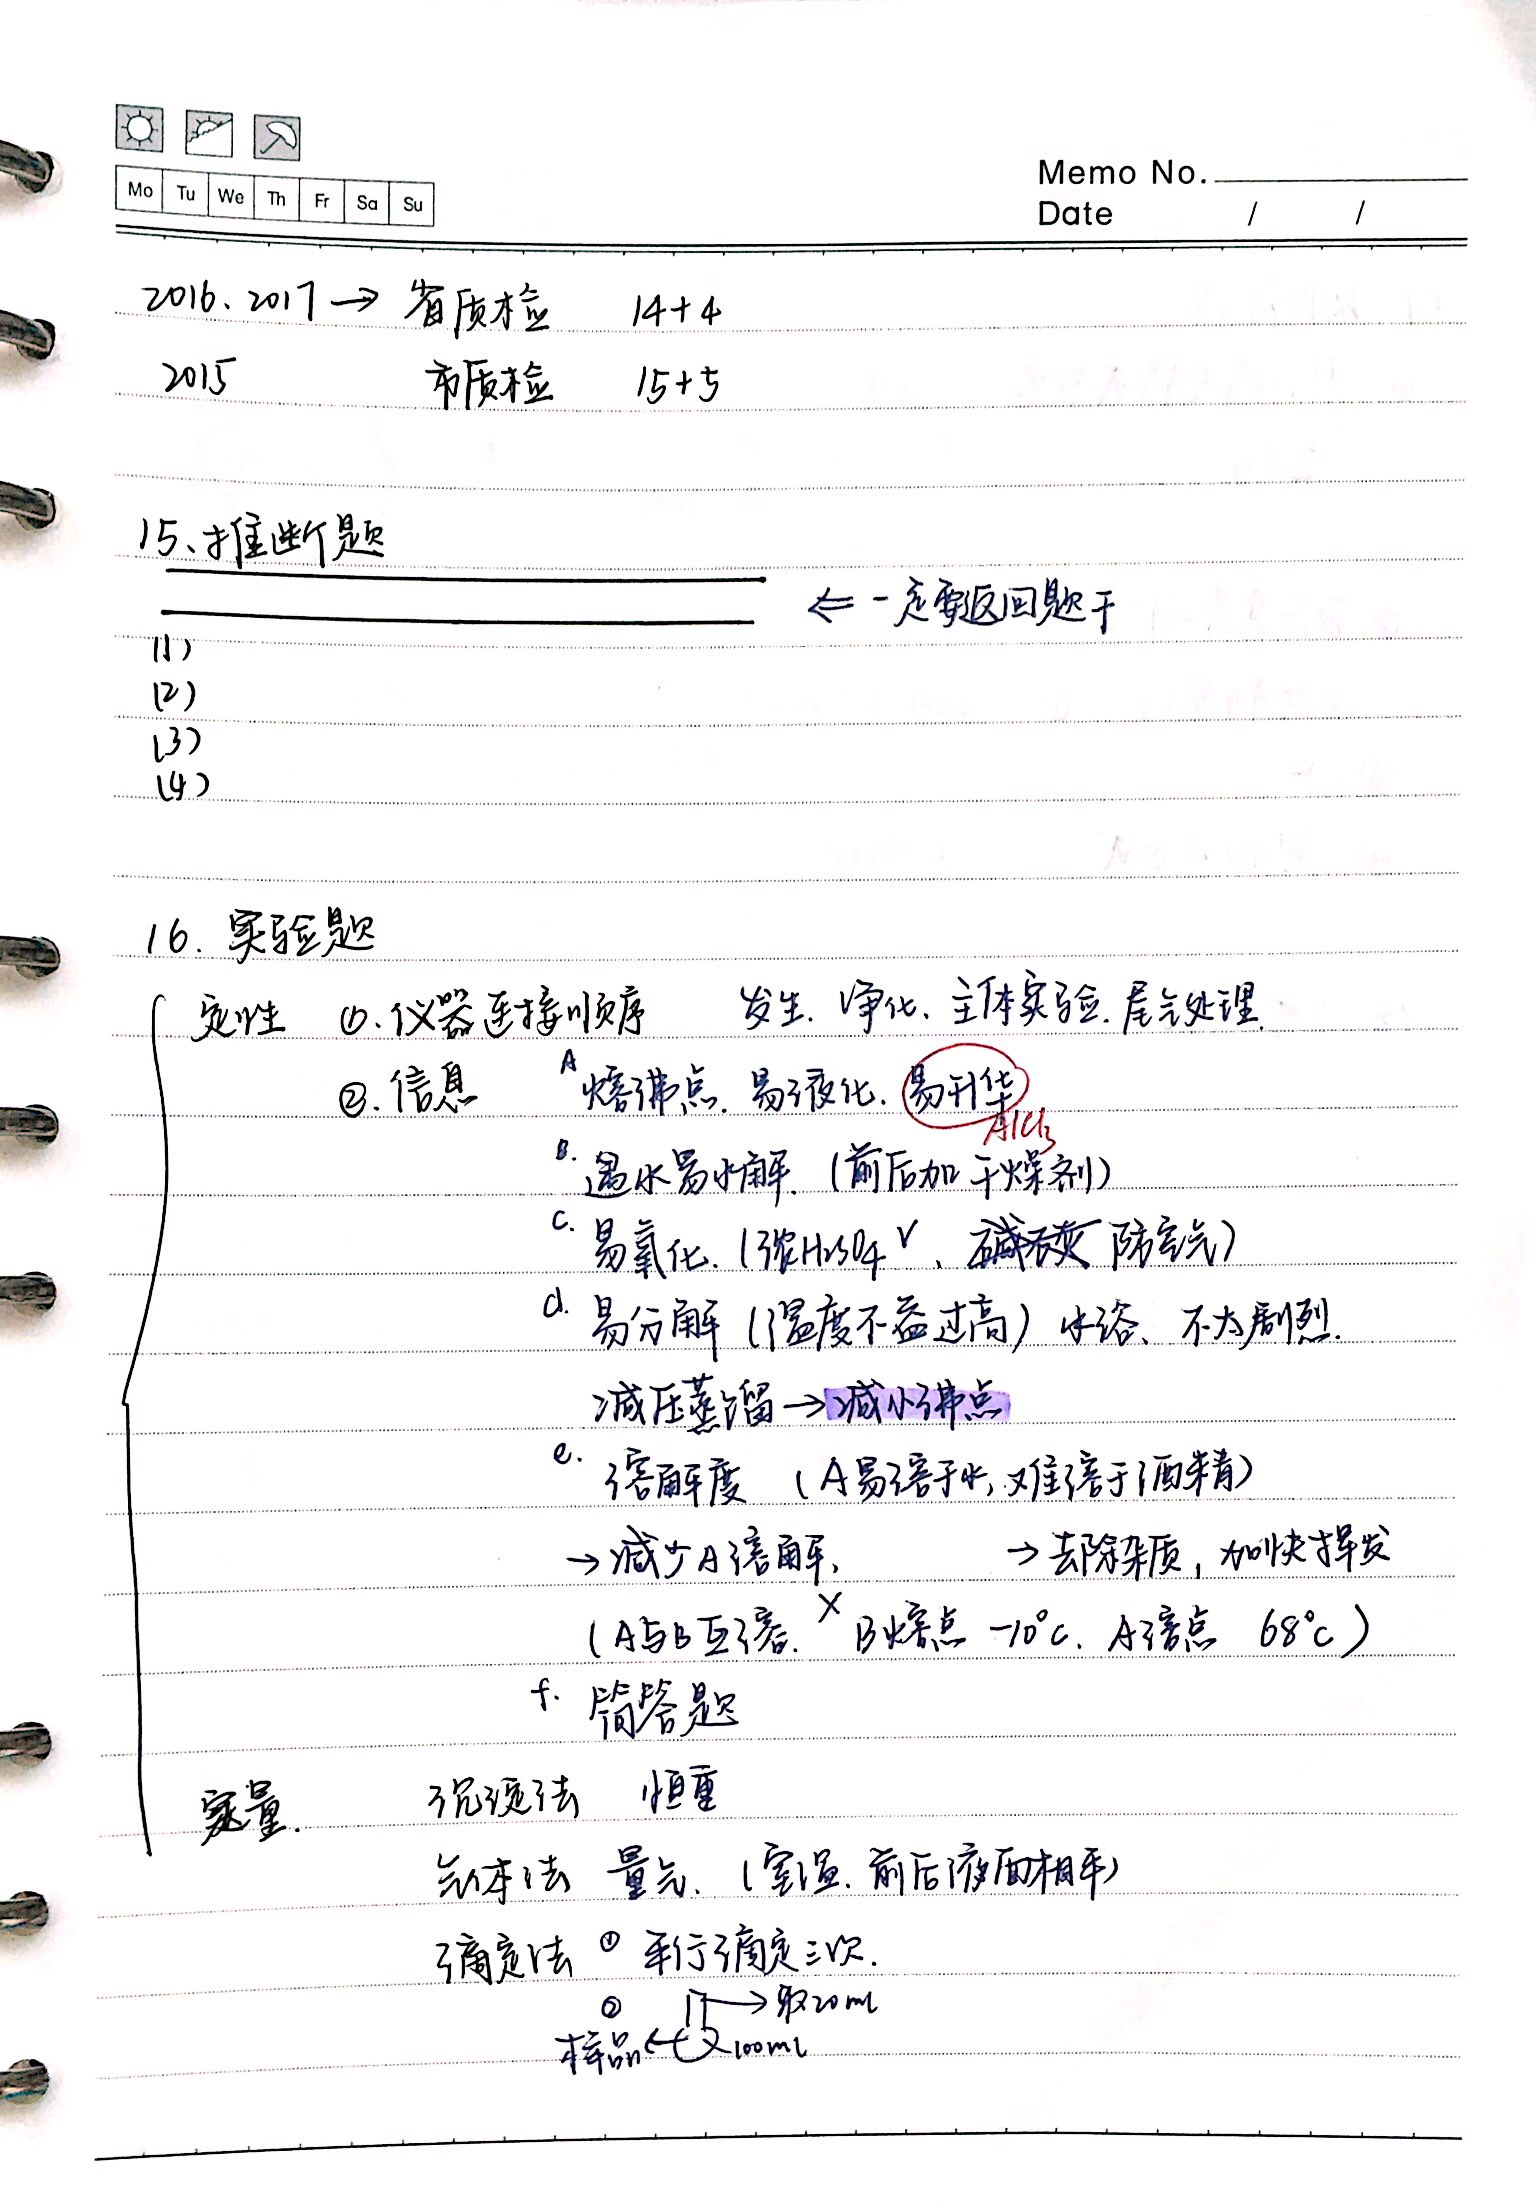 Mo Tu We Th Fr Sa Su
Memo No.
Date / /
2016、2017→ 省质检 14+4
2015 市质检 15+5
15、推断题
⇐ 一定要返回题干
(1)
(2)
(3)
(4)
16. 实验题
定性 ①.仪器连接顺序 发生、净化、主体实验.尾气处理.
②.信息 A 熔沸点.易液化.易升华
AlCl3
B. 遇水易水解.(前后加干燥剂)
C. 易氧化.(浓H2SO4 √、 防空气)
d. 易分解(温度不益过高)水浴、不太剧烈.
减压蒸馏→减小沸点
e. 溶解度 (A易溶于水,难溶于酒精)
→减少A溶解, →去除杂质,加快挥发
(A与B互溶. × B熔点 -10°C. A溶点 68°C)
f. 简答题
定量. 沉淀法 恒重
气体法 量气.(室温.前后液面相平)
滴定法 ① 平行滴定三次.
② →取20ml
样品← 100ml